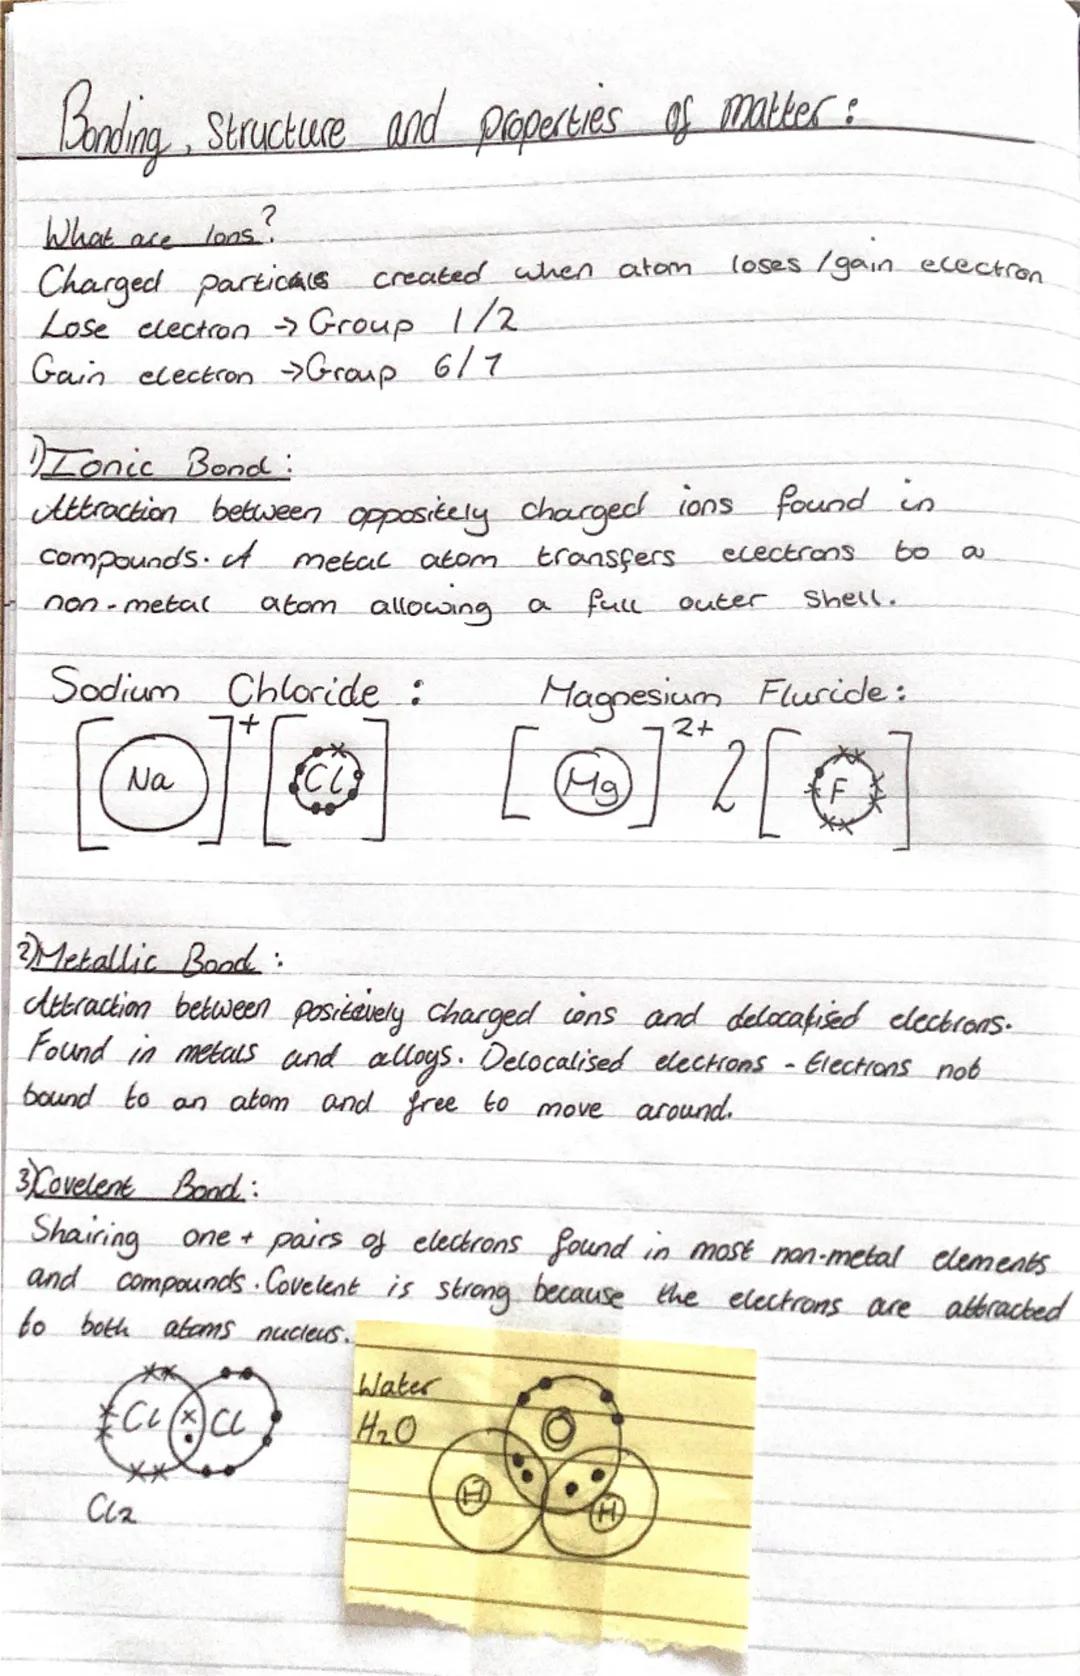 Bonding, Structure and properties of matter:
What are Ions?
Charged particals created when atom loses/gain electron
Lose electron → Group 1/2
Gain electron → Group 6/7
1) Ionic Bond:
Attraction between oppositely charged ions found in
compounds. A metal atom transfers electrons to a
non-metal atom allowing a full outer shell.
Sodium Chloride: Magnesium Fluride:
[Na]+ [Cl] [Mg]2+ 2[F]
2) Metallic Bond:
Attraction between positively charged ions and delocalised electrons.
Found in metals and alloys. Delocalised electrons - Electrons not
bound to an atom and free to move around.
3) Covelent Bond:
Shairing one + pairs of electrons found in most non-metal elements
and compounds. Covelent is strong because the electrons are attracted
to both atoms nucleus.
Cl Cl
Cl2
Water
H2O
O
H H